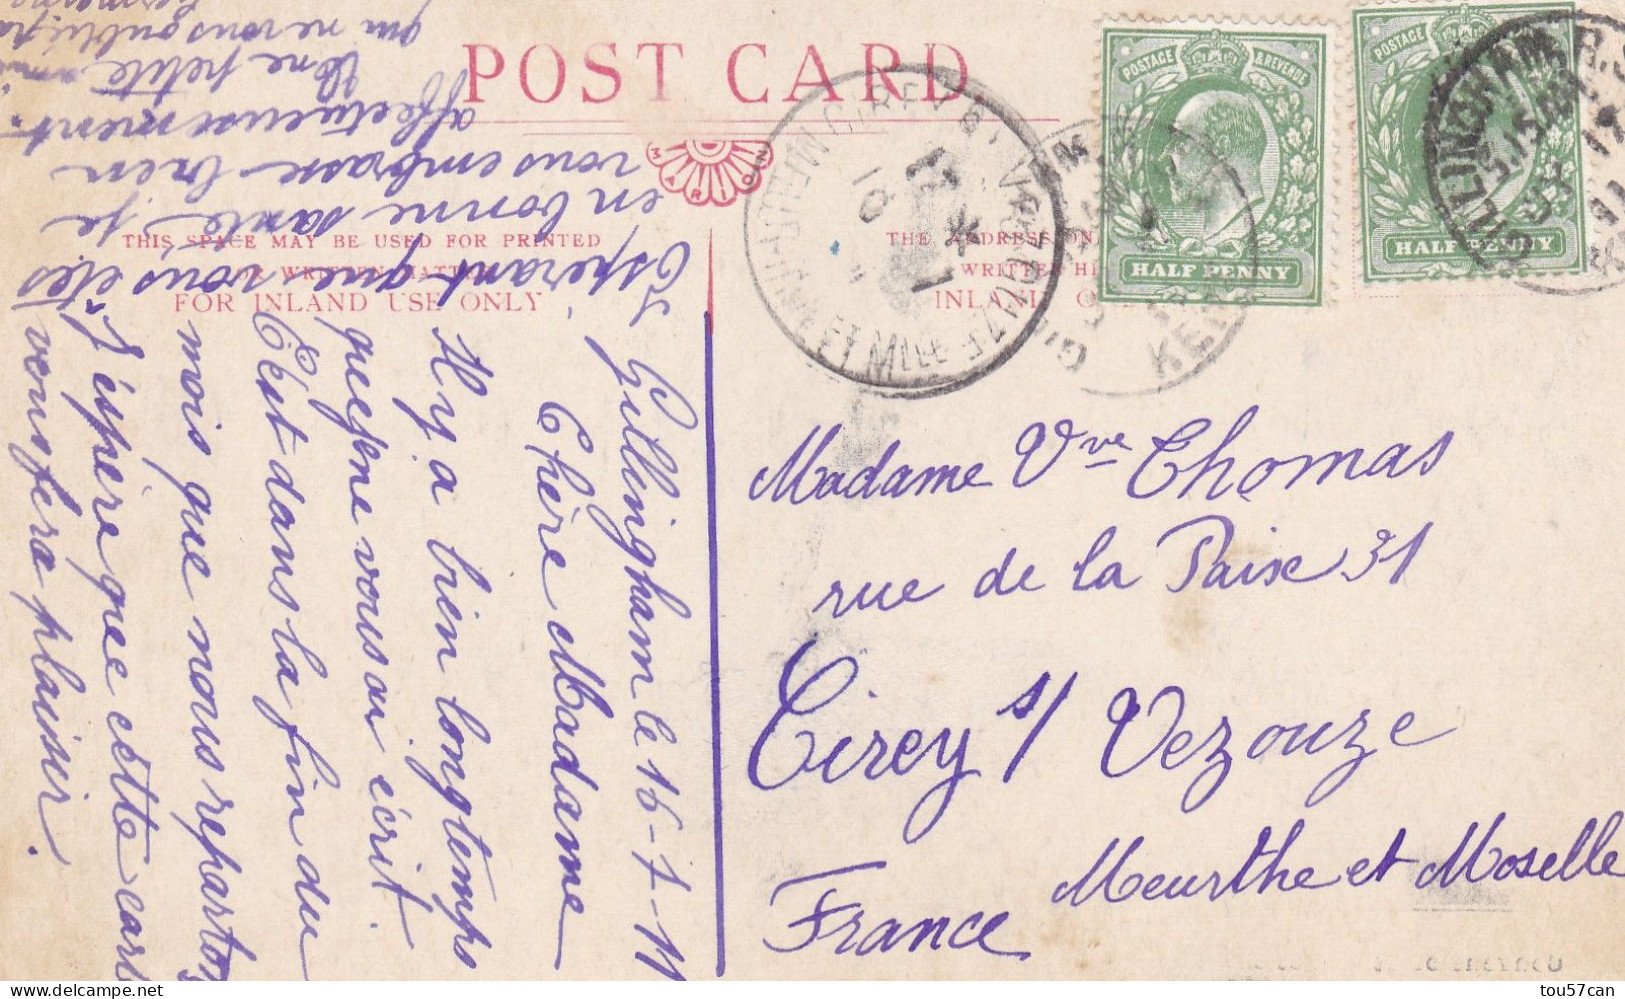 POST CARD
THIS SPACE MAY BE USED FOR PRINTED
OR WRITTEN MATTER
FOR INLAND USE ONLY
THE ADDRESS ON
WRITTEN HE
INLAND O
POSTAGE & REVENUE
HALF PENNY
POSTAGE
HALF PENNY
GILLINGHAM R.S.
Gillingham le 16-7-11
Chère Madame
Il y a bien longtemps
que je ne vous ai écrit
C'est dans la fin du
mois que nous repartons
J'éspère que cette carte
vous fera plaisir.
Espérant que vous êtes
en bonne santé je
vous embrasse bien
affectueusement.
Une petite amie
qui ne vous oublie pas
Madame Vve Thomas
rue de la Paix 31
Cirey s/ Vezouze
Meurthe et Moselle
France
delcampe.net
tou57can